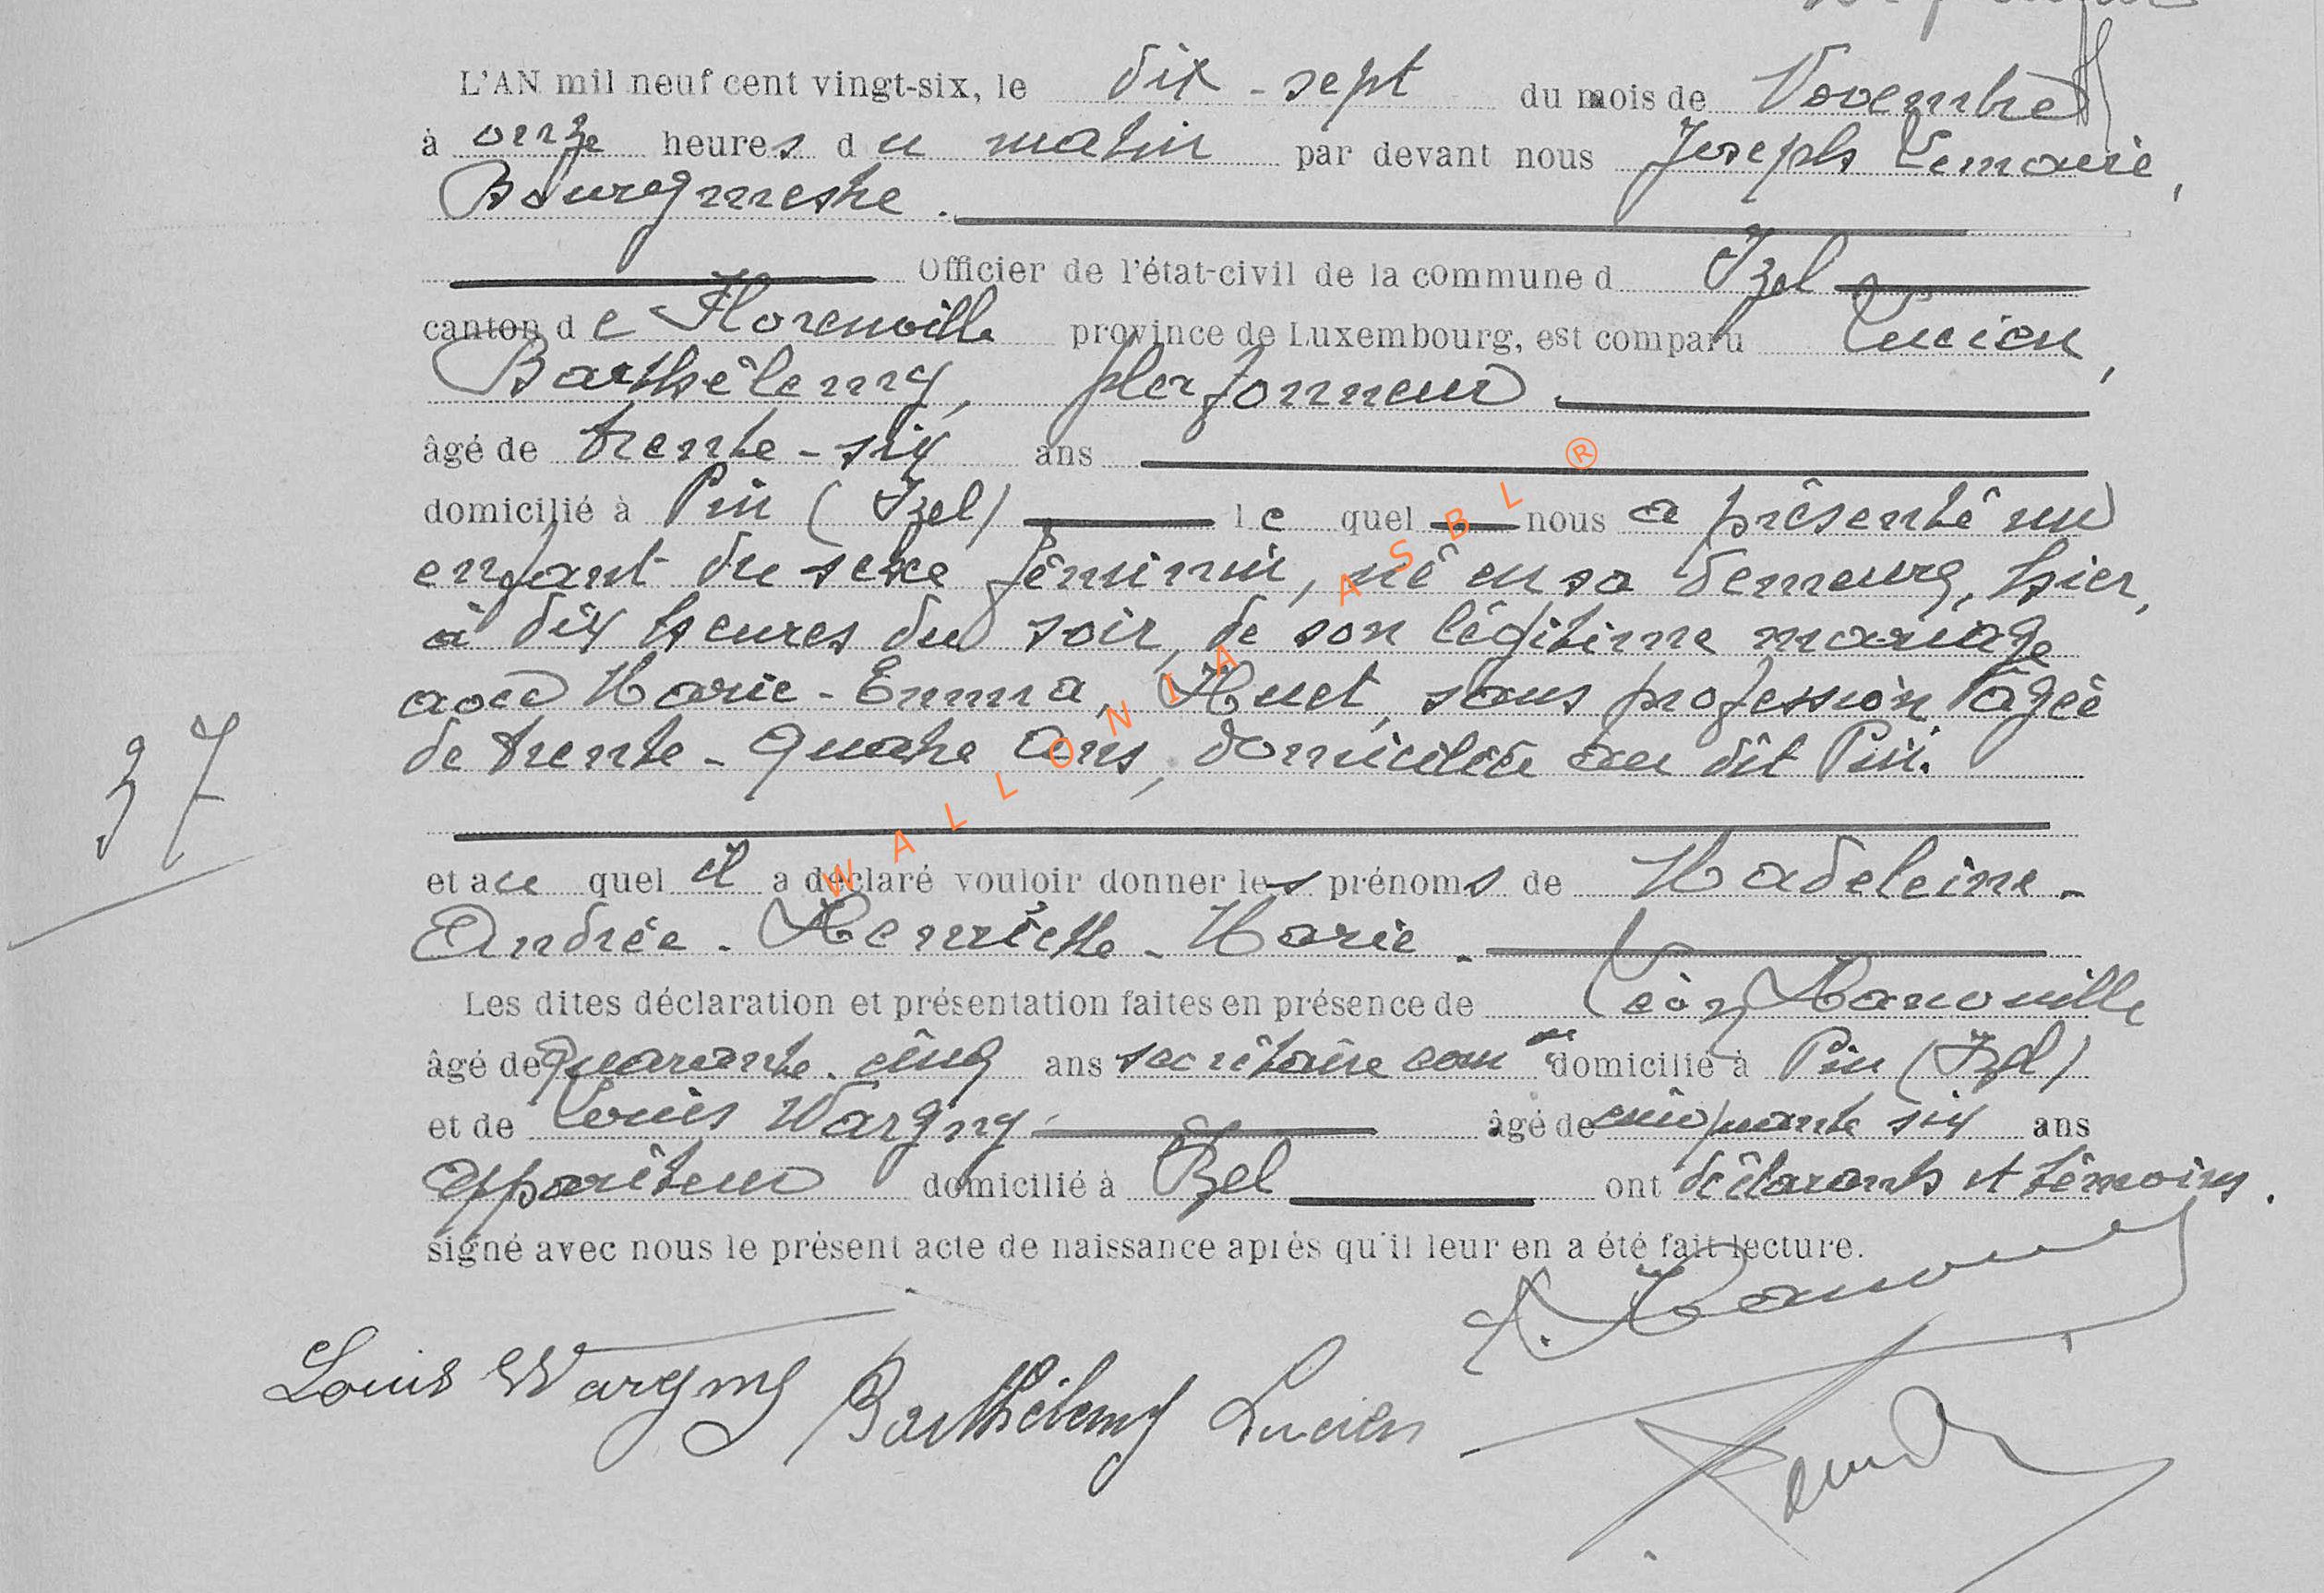 L'AN mil neuf cent vingt-six, le dix-sept du mois de Novembre
à onze heures du matin par devant nous Joseph Lemaire,
Bourgmestre.
Officier de l'état-civil de la commune d Izel
canton de Florenville province de Luxembourg, est comparu Lucien,
Barthélemy, plafonneur
âgé de trente-six ans
domicilié à Pin (Izel) le quel nous a présenté un
enfant du sexe féminin, né en sa demeure, hier,
à dix heures du soir, de son légitime mariage
avec Marie-Emma, Huet, sans profession, âgée
de trente-quatre ans, domiciliée au dit Pin.
37
et au quel il a déclaré vouloir donner les prénoms de Madeleine-
Andrée-Henriette-Marie.
Les dites déclaration et présentation faites en présence de Léon Hanouille
âgé de quarante-cinq ans secrétaire comal domicilié à Pin (Izel)
et de Louis Wargny âgé de cinquante six ans
appariteur domicilié à Izel ont déclarants et témoins.
signé avec nous le présent acte de naissance après qu'il leur en a été fait lecture.
Louis Wargny Barthélemy Lucien
WALLONIA ASBL ®